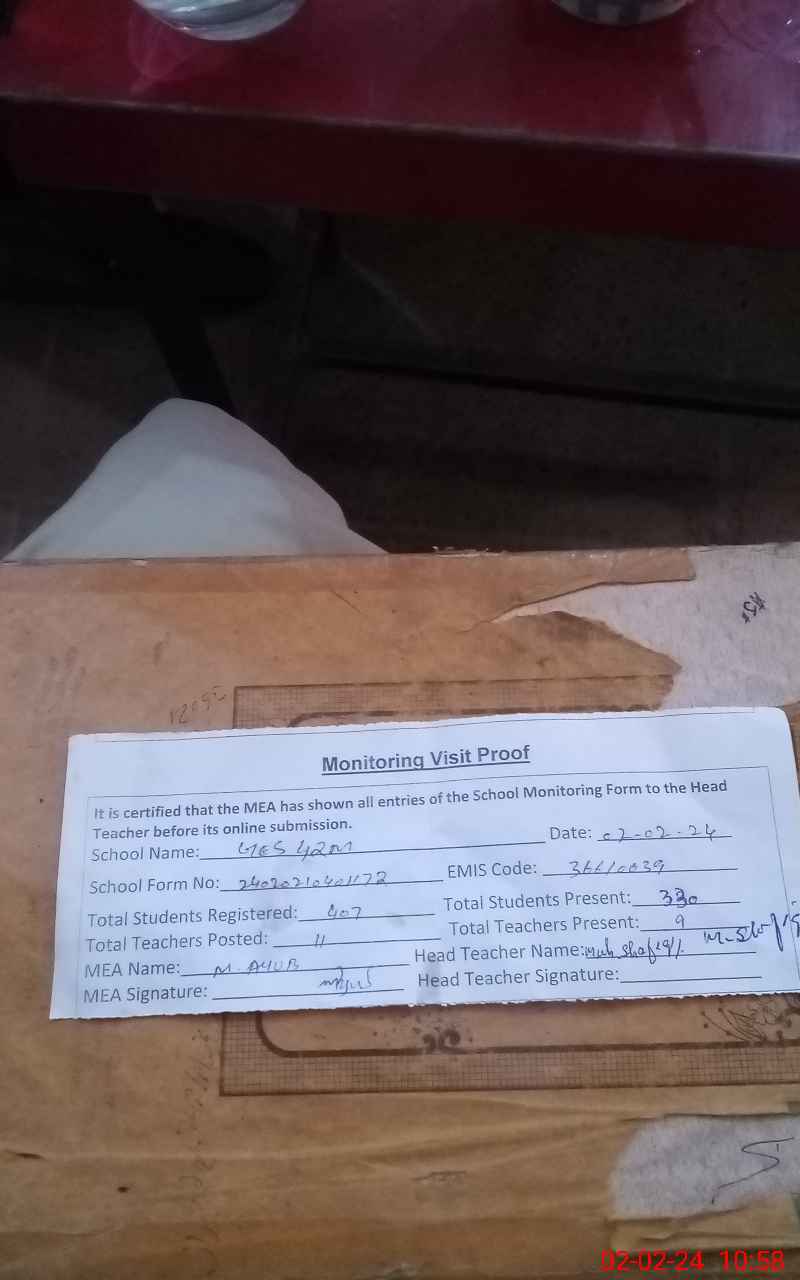 Monitoring Visit Proof
It is certified that the MEA has shown all entries of the School Monitoring Form to the Head
Teacher before its online submission.
School Name: Date: 02-02-24
School Form No: EMIS Code:
Total Students Registered: 407 Total Students Present: 330
Total Teachers Posted: 11 Total Teachers Present: 9
MEA Name: M. AYUB Head Teacher Name:
MEA Signature: Head Teacher Signature:
5
02-02-24 10:58